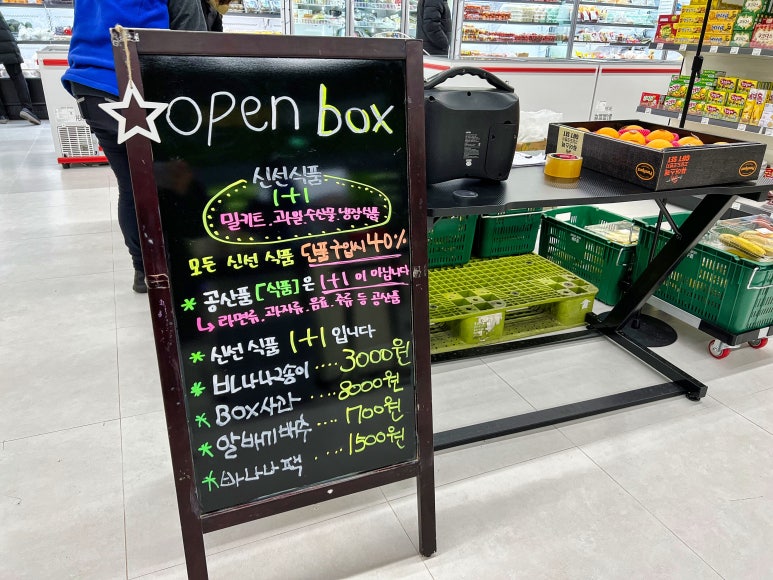 open box
신선식품
1+1
밀키트.과일.수산물.냉장식품
모든 신선 식품 도품구입시 40%
* 공산품[식품]은 1+1이 아닙니다
↳ 라면류.과자류.음료.주류 등 공산품
* 신선 식품 1+1 입니다
* 바나나2송이 .... 3000원
* BOX사과 .... 8000원
* 알배기배추 .... 1700원
* 바나나 팩 .... 1500원